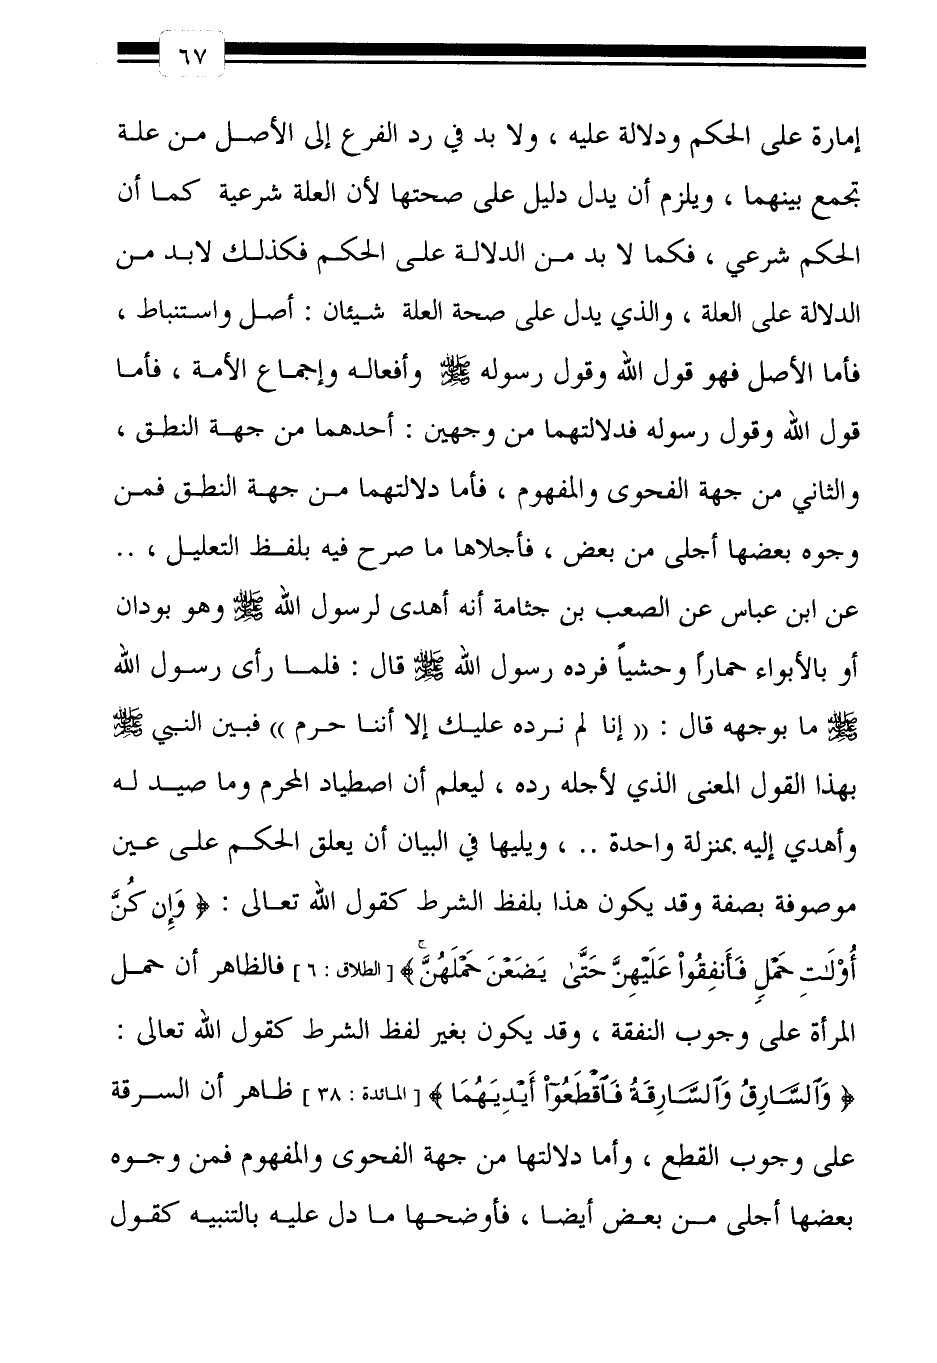 ٦٧
إمارة على الحكم ودلالة عليه ، ولا بد في رد الفرع إلى الأصل من علة
تجمع بينهما ، ويلزم أن يدل دليل على صحتها لأن العلة شرعية كما أن
الحكم شرعي ، فكما لا بد من الدلالة على الحكم فكذلك لابد من
الدلالة على العلة ، والذي يدل على صحة العلة شيئان : أصل واستنباط ،
فأما الأصل فهو قول الله وقول رسوله ﷺ وأفعاله وإجماع الأمة ، فأما
قول الله وقول رسوله فدلالتهما من وجهين : أحدهما من جهة النطق ،
والثاني من جهة الفحوى والمفهوم ، فأما دلالتهما من جهة النطق فمن
وجوه بعضها أجلى من بعض ، فأجلاها ما صرح فيه بلفظ التعليل ، ..
عن ابن عباس عن الصعب بن جثامة أنه أهدى لرسول الله ﷺ وهو بودان
أو بالأبواء حماراً وحشياً فرده رسول الله ﷺ قال : فلما رأى رسول الله
ﷺ ما بوجهه قال : (( إنا لم نرده عليك إلا أننا حرم )) فبين النبي ﷺ
بهذا القول المعنى الذي لأجله رده ، ليعلم أن اصطياد المحرم وما صيد له
وأهدي إليه بمنزلة واحدة .. ، ويليها في البيان أن يعلق الحكم على عين
موصوفة بصفة وقد يكون هذا بلفظ الشرط كقول الله تعالى : ﴿ وَإِن كُنَّ
أُوْلَٰتِ حَمْلٍ فَأَنفِقُواْ عَلَيْهِنَّ حَتَّىٰ يَضَعْنَ حَمْلَهُنَّ ۚ ﴾ [ الطلاق : ٦ ] فالظاهر أن حمل
المرأة على وجوب النفقة ، وقد يكون بغير لفظ الشرط كقول الله تعالى :
﴿ وَٱلسَّارِقُ وَٱلسَّارِقَةُ فَٱقْطَعُوٓاْ أَيْدِيَهُمَا ﴾ [ المائدة : ٣٨ ] ظاهر أن السرقة
على وجوب القطع ، وأما دلالتها من جهة الفحوى والمفهوم فمن وجوه
بعضها أجلى من بعض أيضا ، فأوضحها ما دل عليه بالتنبيه كقول